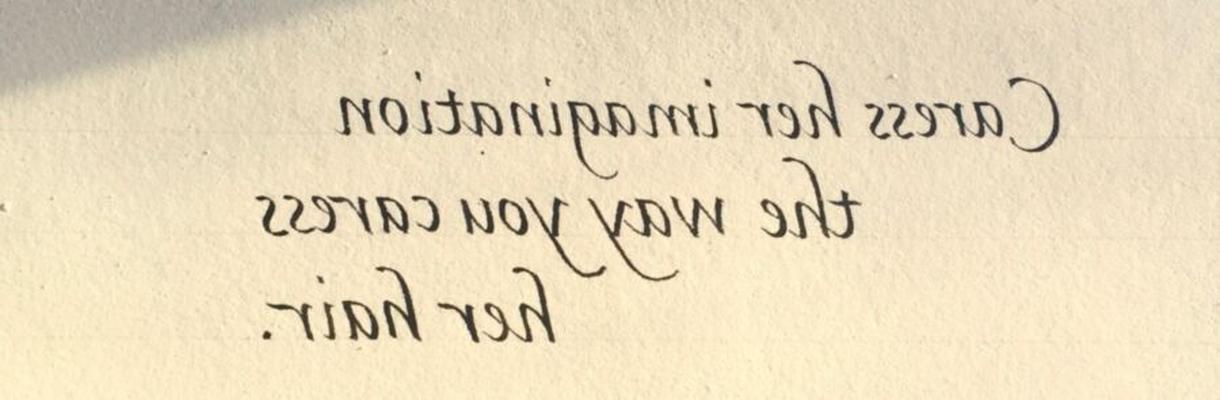 Caress her imagination
the way you caress
her hair.